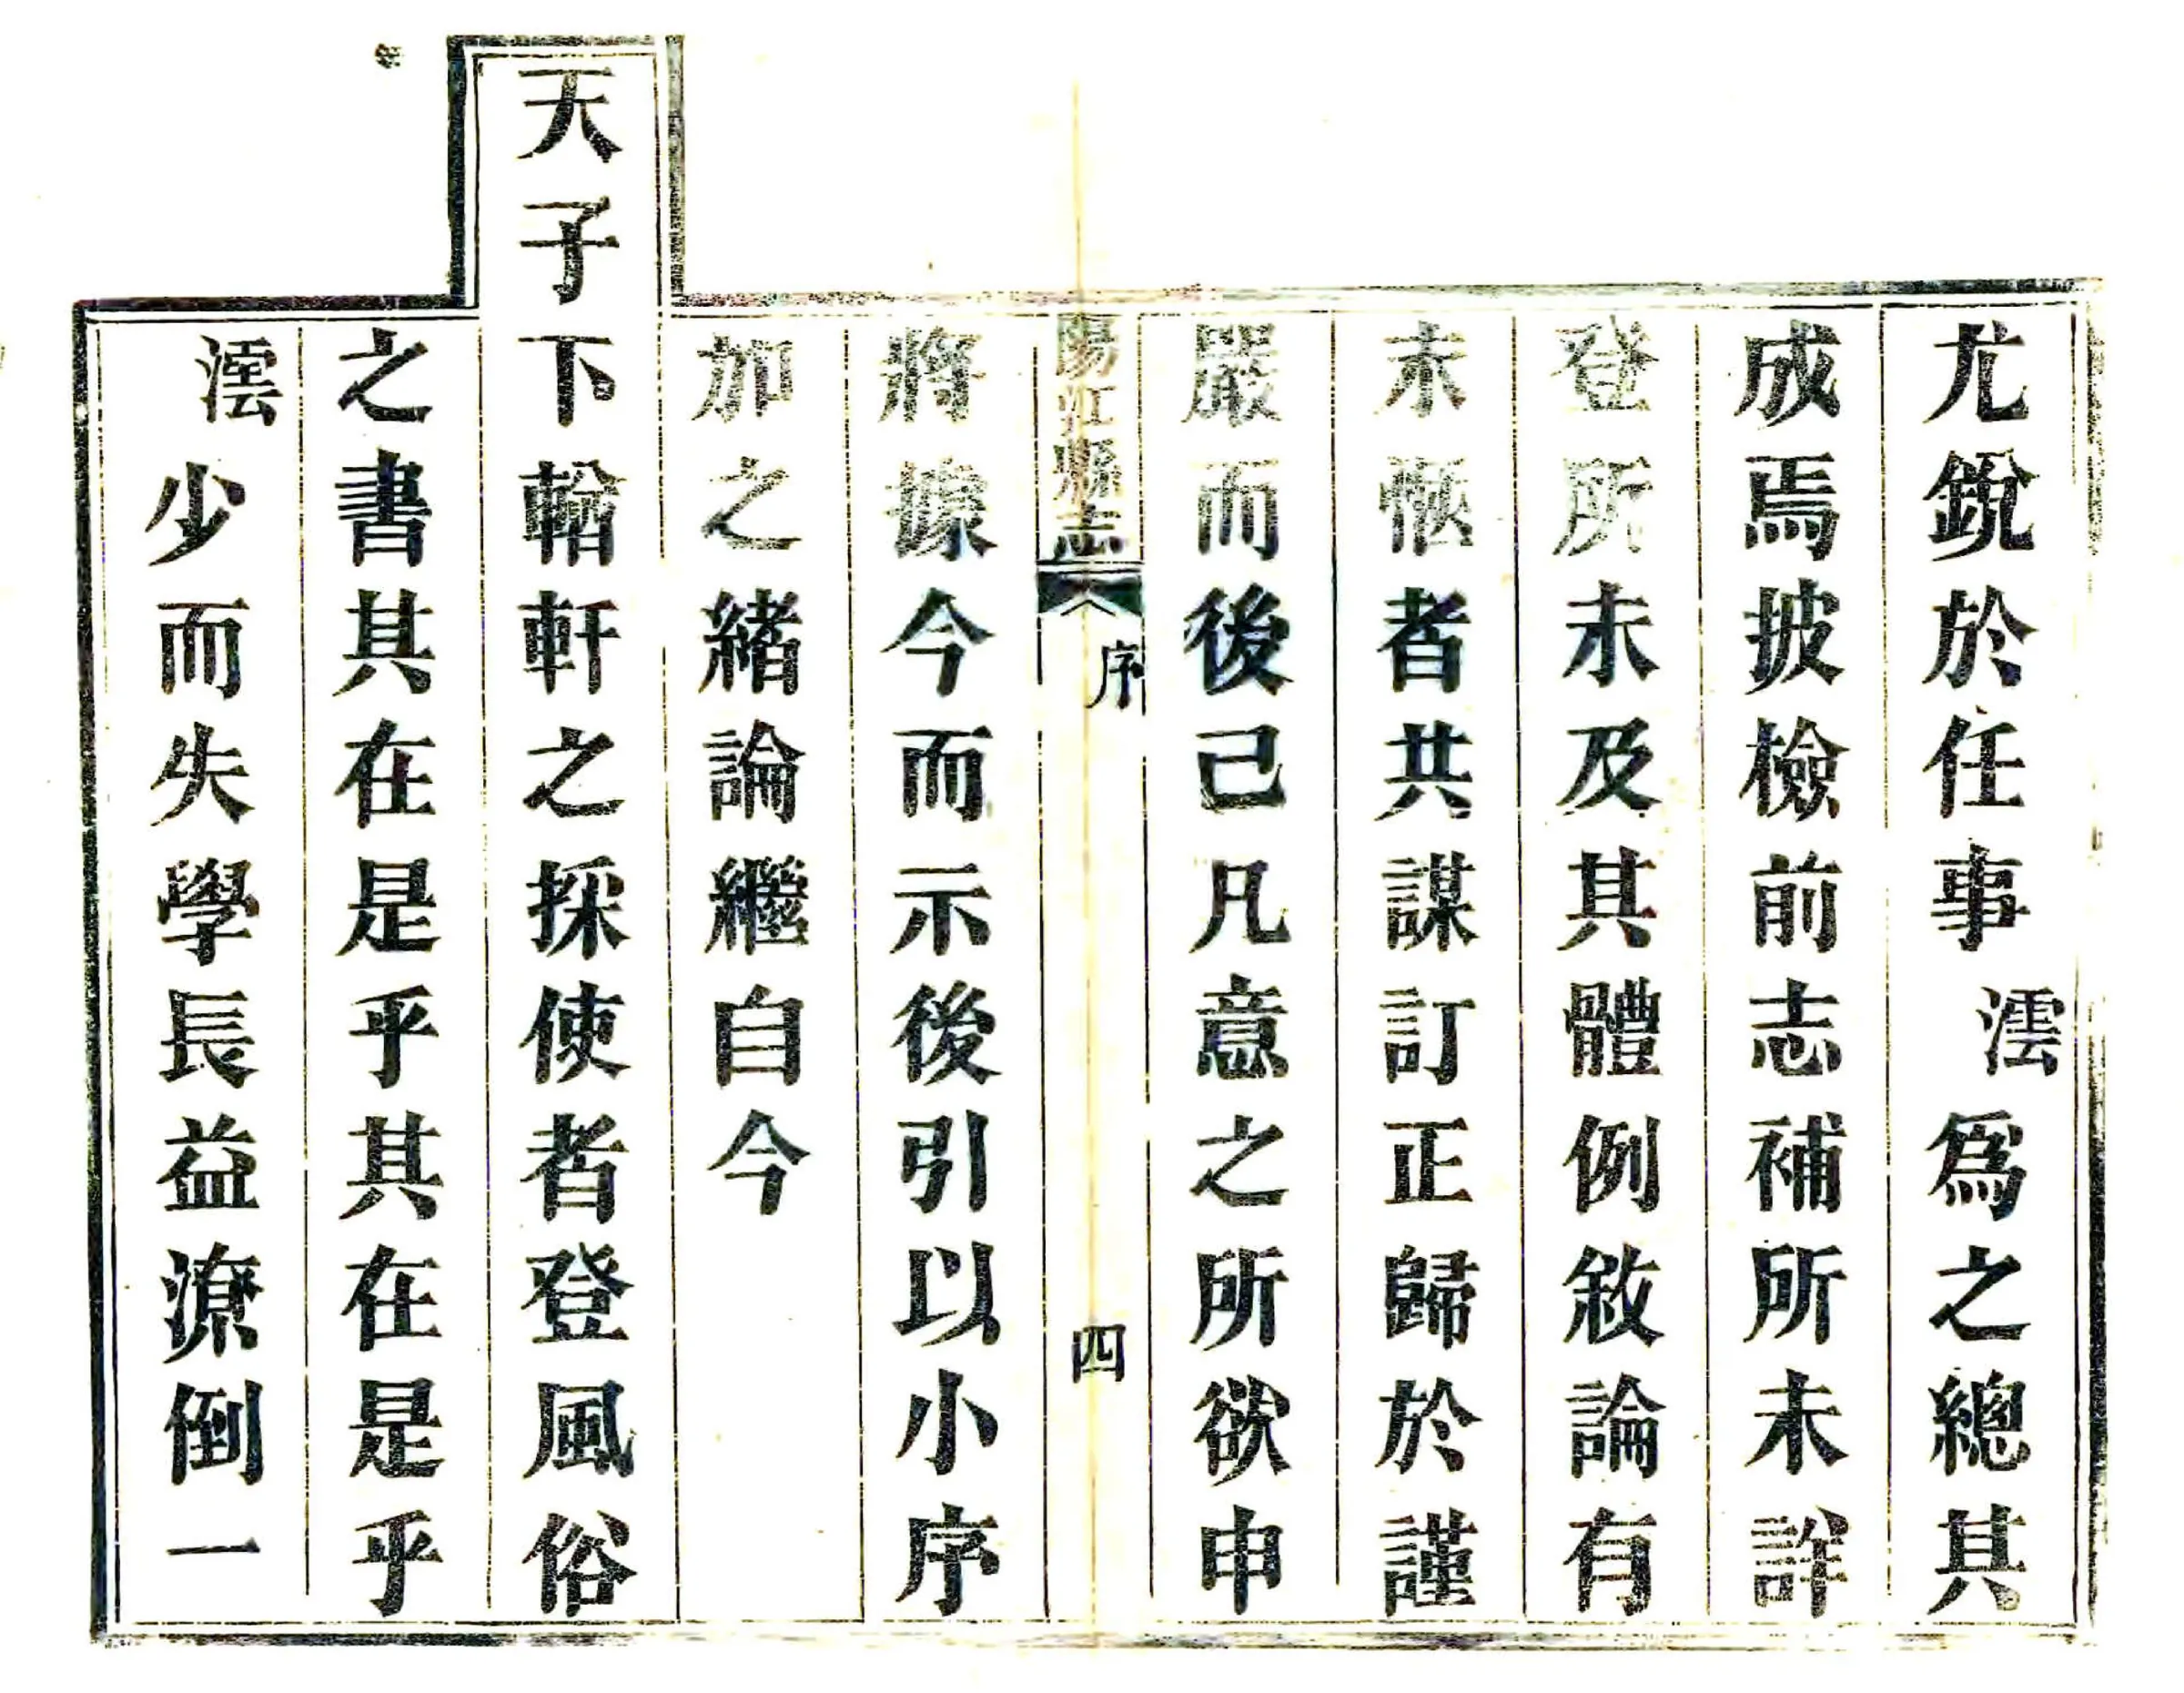 尤銳於任事澐爲之總其
成焉披檢前志補所未詳
登所未及其體例敘論有
未愜者共謀訂正歸於謹
嚴而後己凡意之所欲申
陽江縣志
序
四
將據今而示後引以小序
加之緒論繼自今
天子下輶軒之採使者登風俗
之書其在是乎其在是乎
澐少而失學長益潦倒一